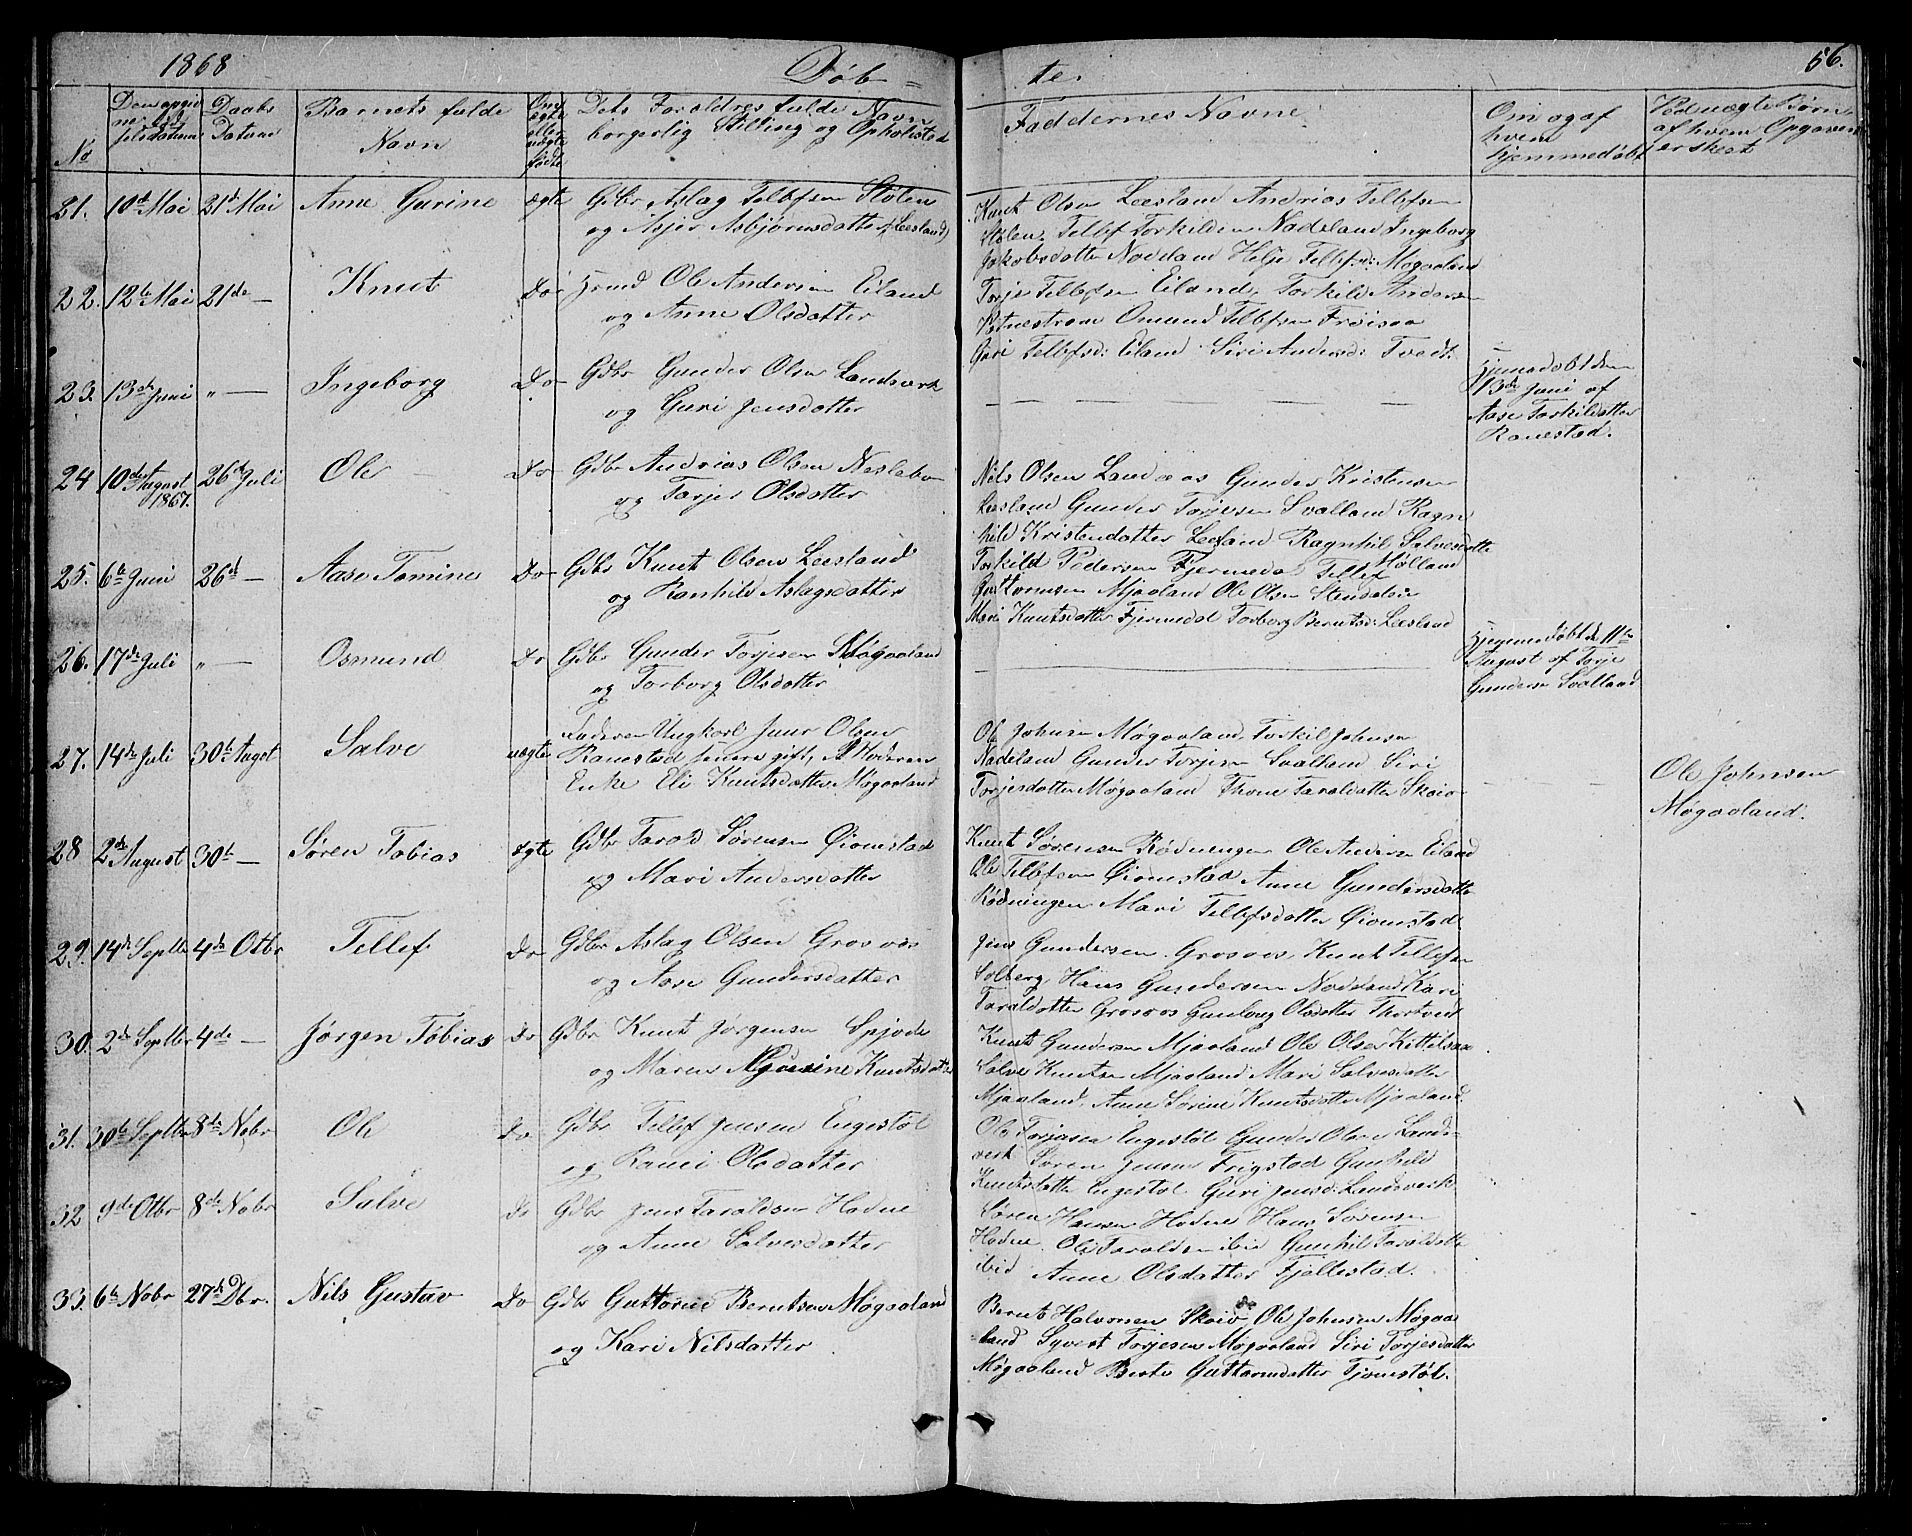 1868 Døb= te. 56.
No
Den opgivne Fødselsdatum
Daabs Datum
Barnets fulde Navn
Om ægte eller uægte født
Dets Forældres fulde Navn borgerlig Stilling og Opholdsted
Faddernes Navne
Om og af hvem hjemmedøbt
Ved uægte Børn af hvem Opgaven er skeet
21. 10de Mai 21de Mai Anne Gurine ægte Gdbr Aslag Tellefsen Stølen
og Asjer Asbjørnsdatter (Leesland)
Knut Olsen Leesland Andrias Tellefsen
Stølen, Tellef Torkildsen Nadeland Ingeborg
Jakobsdatter Nodeland Helje Tellefsd: Møgaaland
22. 12te Mai 21de — Knut Do Ole Andersen Eiland
og Anne Olsdatter
Torje Tellefsen Eiland, Torkild Andersen
Omund Tellefsen Frøisaa
Guri Tellefsd: Eiland Siri Andersd: Tvedt.
23. 13de Juni " — Ingeborg Do Gdbr Gunder Olsen Landsverk
og Guri Jensdatter
— — — —
Hjemmedøbt den
13de Juni af
Aase Torkildsdatter
Ranestad.
24 10de August 1867. 26de Juli Ole Do Gdbr Andrias Olsen
og Torjer Olsdatter
Nils Olsen Gunder Kristensen
Leesland Gunder Torjesen Svalland Ragn
hild Kristensdatter Leesland Ragnhil Salvesdatter
Holland
25. 6te Juni 26de — Aase Tomine Do Gdbr Knut Olsen Leesland
og Ranhild Aslagsdatter
Torkild Pedersen Fjermedal Tellef
Guttormsen Mjaaland Ole Olsen
Mari Knutsdatter Fjermedal Torborg Berntsd: Leesland
26. 17de Juli " — Osmund Do Gdbr Gunder Torjesen Møgaaland
og Torborg Olsdatter
Hjemmedøbt d 11te
August af Torje
Gundersen Svalland
27. 14de Juli 30te Augst Salve uægte Faderen Ungkarl Olsen
Ranestad gift, Moderen
Enke Eli Knutsdatter Møgaaland
Ole Johnsen Møgaaland, Torkil Johnsen
Nadeland Gunder Torjesen Svalland Siri
Torjesdatter Møgaaland Thone Taraldsdatter Skeie
Ole Johnsen
Møgaaland.
28 2de August 30te — Søren Tobias ægte Gdbr Tarald Sørensen Øiomstad
og Mari Andersdatter
Knut Sørensen Rødningen Ole Andersen Eiland
Ole Tellefsen Øiomstad Anne Gundersdatter
Rødningen Mari Tellefsdatter Øiomstad
29. 14de Septbr 4de Otbr Tellef Do Gdbr Aslag Olsen Grosaas
og Aase Gundersdatter
Jens Gundersen Grosaas, Knut Tellefsen
Solberg, Hans Gundersen Nodeland Kari
Taraldsdatter Grosaas Gunlaug Olsdatter Thortvedt
30. 2de Septbr 4de — Jørgen Tobias Do Gdbr Knut Jørgensen Spjode
og Maren Knutsdatter
Knut Gundersen Mjaaland Ole Olsen Kittelsaa
Salve Knutsen Mjaaland Mari Salvesdatter
Mjaaland, Anne Sørine Knutsdatter Mjaaland
31. 30te Septbr 8de Nobr Ole Do Gdbr Tellef Jensen Engestøl
og Ranei Olsdatter
Ole Torjesen Engestøl Gunder Olsen Lands-
verk Søren Jensen Frigstad Gunhild
Knutsdatter Engestøl Guri Jensd: Landsverk
32 9de Otbr 8de Nobr Salve Do Gdbr Jens Taraldsen Hodne
og Anne Salvesdatter
Søren Hansen Hodne Hans Sørensen
Hodne Ole Taraldsen ibid Gunhil Taraldsdatter
ibid Anne Olsdatter Fjellestad.
33. 6te Nobr 27de Dbr. Nils Gustav Do Gdbr Guttorm Berntsen Møgaaland
og Kari Nilsdatter
Bernt Halvorsen Skeie Ole Johnsen Møgaa
land Syvert Torjesen Møgaaland Siri Torjesdatter
Møgaaland Berte Guttormsdatter Tjonestøl.